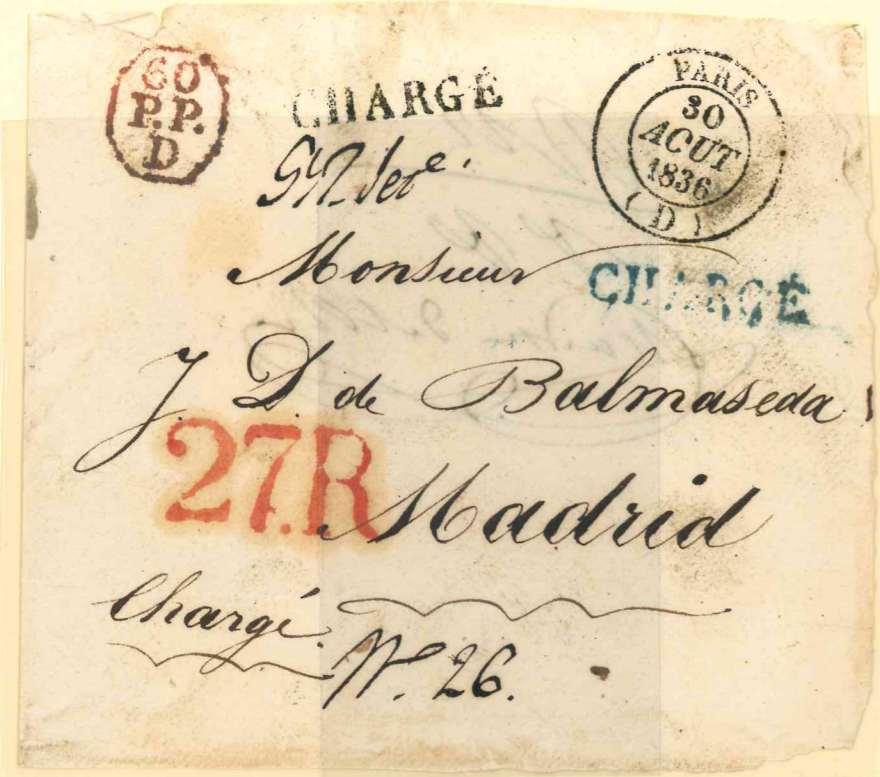 60
P.P.
D
CHARGÉ
PARIS
30
AOUT
1836
(D)
Monsieur
CHARGÉ
J. D. de Balmaseda
27.R
Madrid
Chargé
Nº. 26.